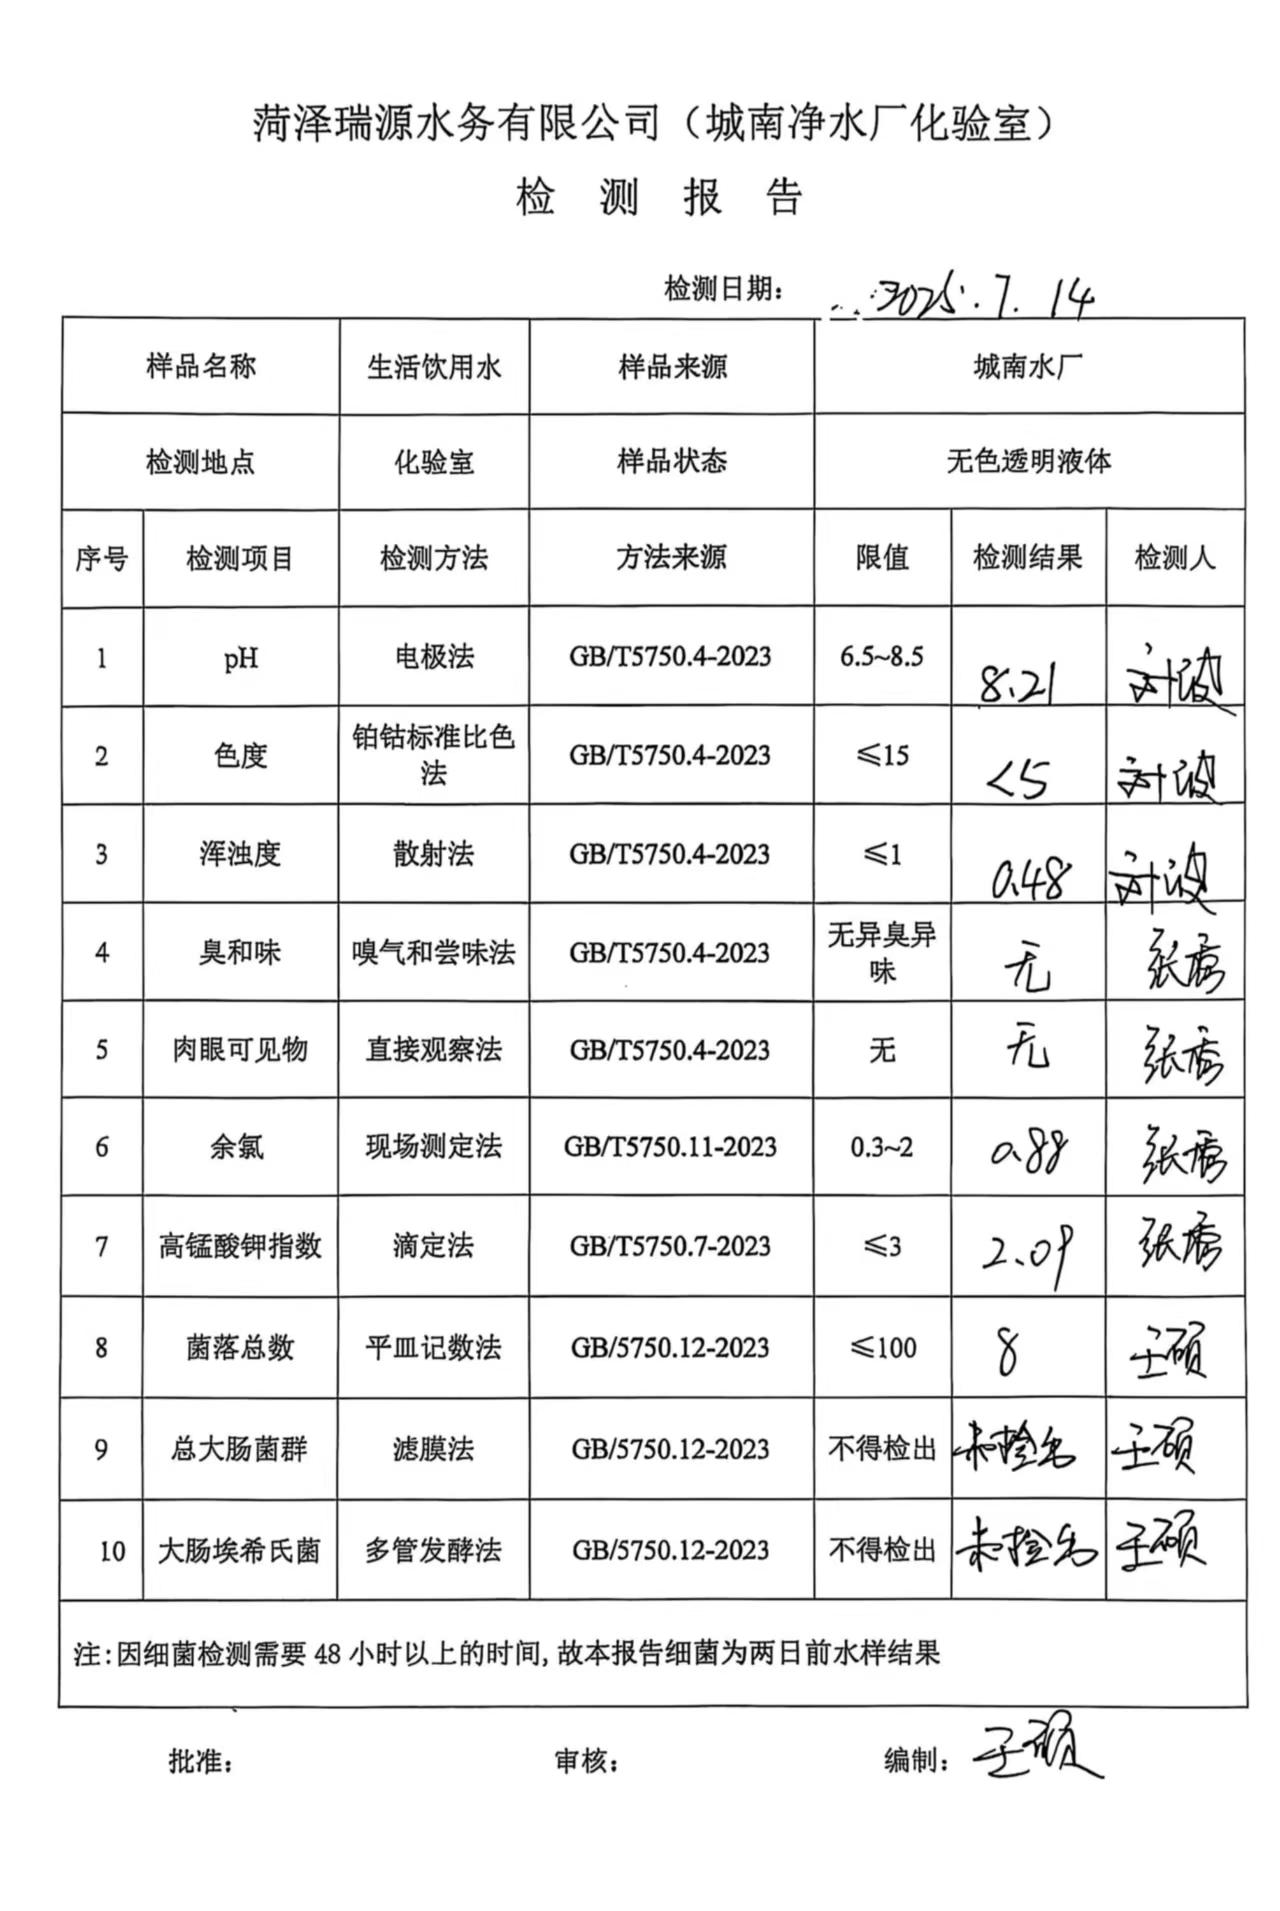 菏泽瑞源水务有限公司（城南净水厂化验室）
检 测 报 告
检测日期： 2025.7.14
样品名称 生活饮用水 样品来源 城南水厂
检测地点 化验室 样品状态 无色透明液体
序号 检测项目 检测方法 方法来源 限值 检测结果 检测人
1 pH 电极法 GB/T5750.4-2023 6.5~8.5 8.21 刘波
2 色度 铂钴标准比色法 GB/T5750.4-2023 ≤15 <5 刘波
3 浑浊度 散射法 GB/T5750.4-2023 ≤1 0.48 刘波
4 臭和味 嗅气和尝味法 GB/T5750.4-2023 无异臭异味 无 张秀
5 肉眼可见物 直接观察法 GB/T5750.4-2023 无 无 张秀
6 余氯 现场测定法 GB/T5750.11-2023 0.3~2 0.88 张秀
7 高锰酸钾指数 滴定法 GB/T5750.7-2023 ≤3 2.09 张秀
8 菌落总数 平皿记数法 GB/5750.12-2023 ≤100 8 王硕
9 总大肠菌群 滤膜法 GB/5750.12-2023 不得检出 未检出 王硕
10 大肠埃希氏菌 多管发酵法 GB/5750.12-2023 不得检出 未检出 王硕
注：因细菌检测需要 48 小时以上的时间，故本报告细菌为两日前水样结果
批准： 审核： 编制：王硕